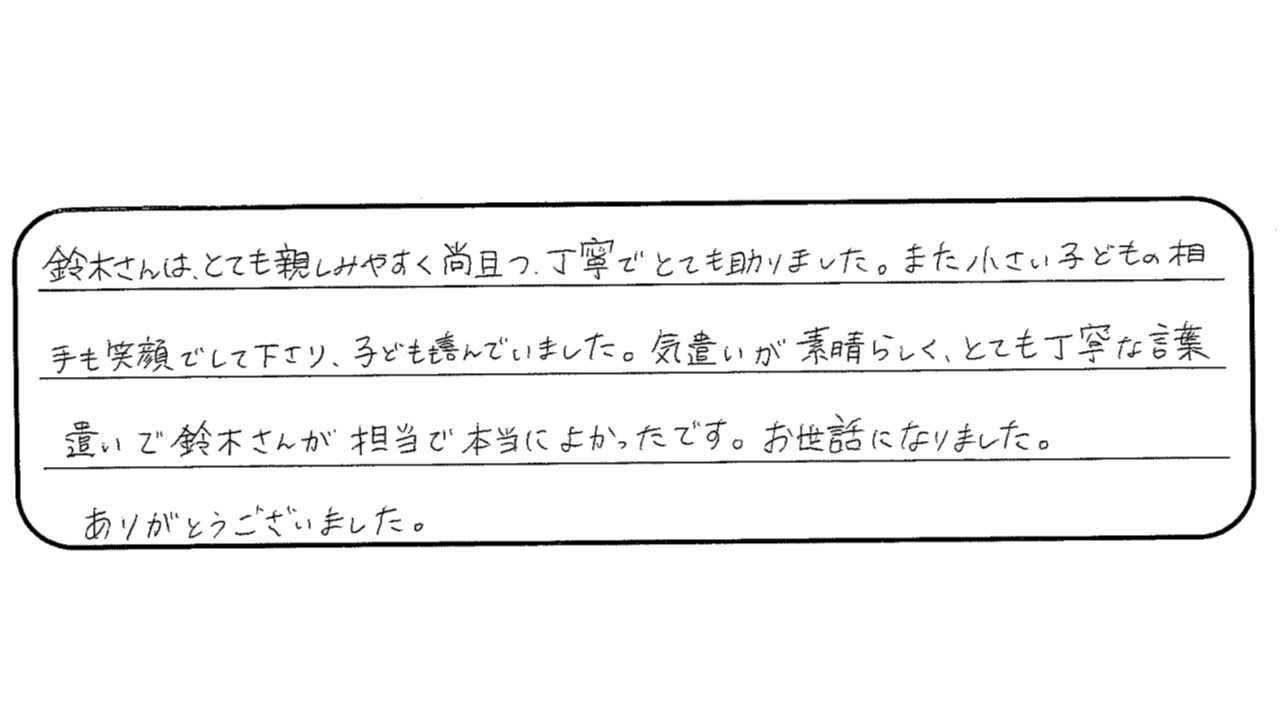 鈴木さんは、とても親しみやすく尚且つ、丁寧でとても助りました。また小さい子どもの相
手も笑顔でして下さり、子どもも喜んでいました。気遣いが素晴らしく、とても丁寧な言葉
遣いで鈴木さんが担当で本当によかったです。お世話になりました。
ありがとうございました。